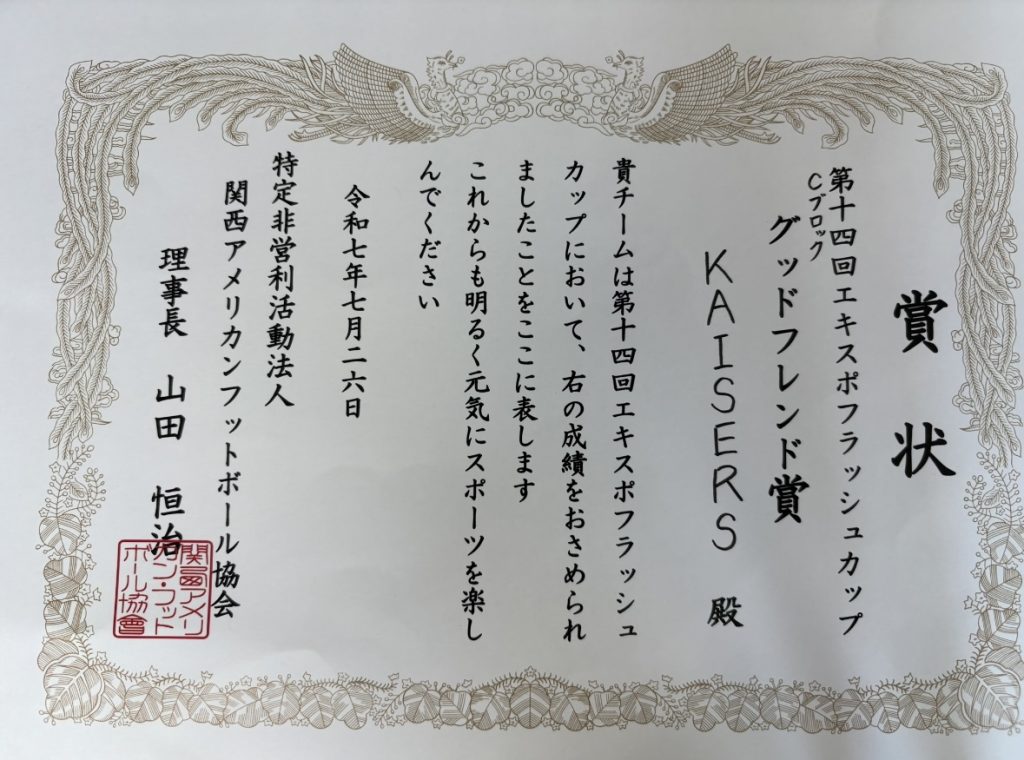 賞状
第十四回エキスポフラッシュカップ
Cブロック
グッドフレンド賞
KAISERS 殿
貴チームは第十四回エキスポフラッシュ
カップにおいて、右の成績をおさめられ
ましたことをここに表します
これからも明るく元気にスポーツを楽し
んでください
令和七年七月二六日
特定非営利活動法人
関西アメリカンフットボール協会
理事長 山田 恒治
関西アメリ
カン・フット
ボール協會